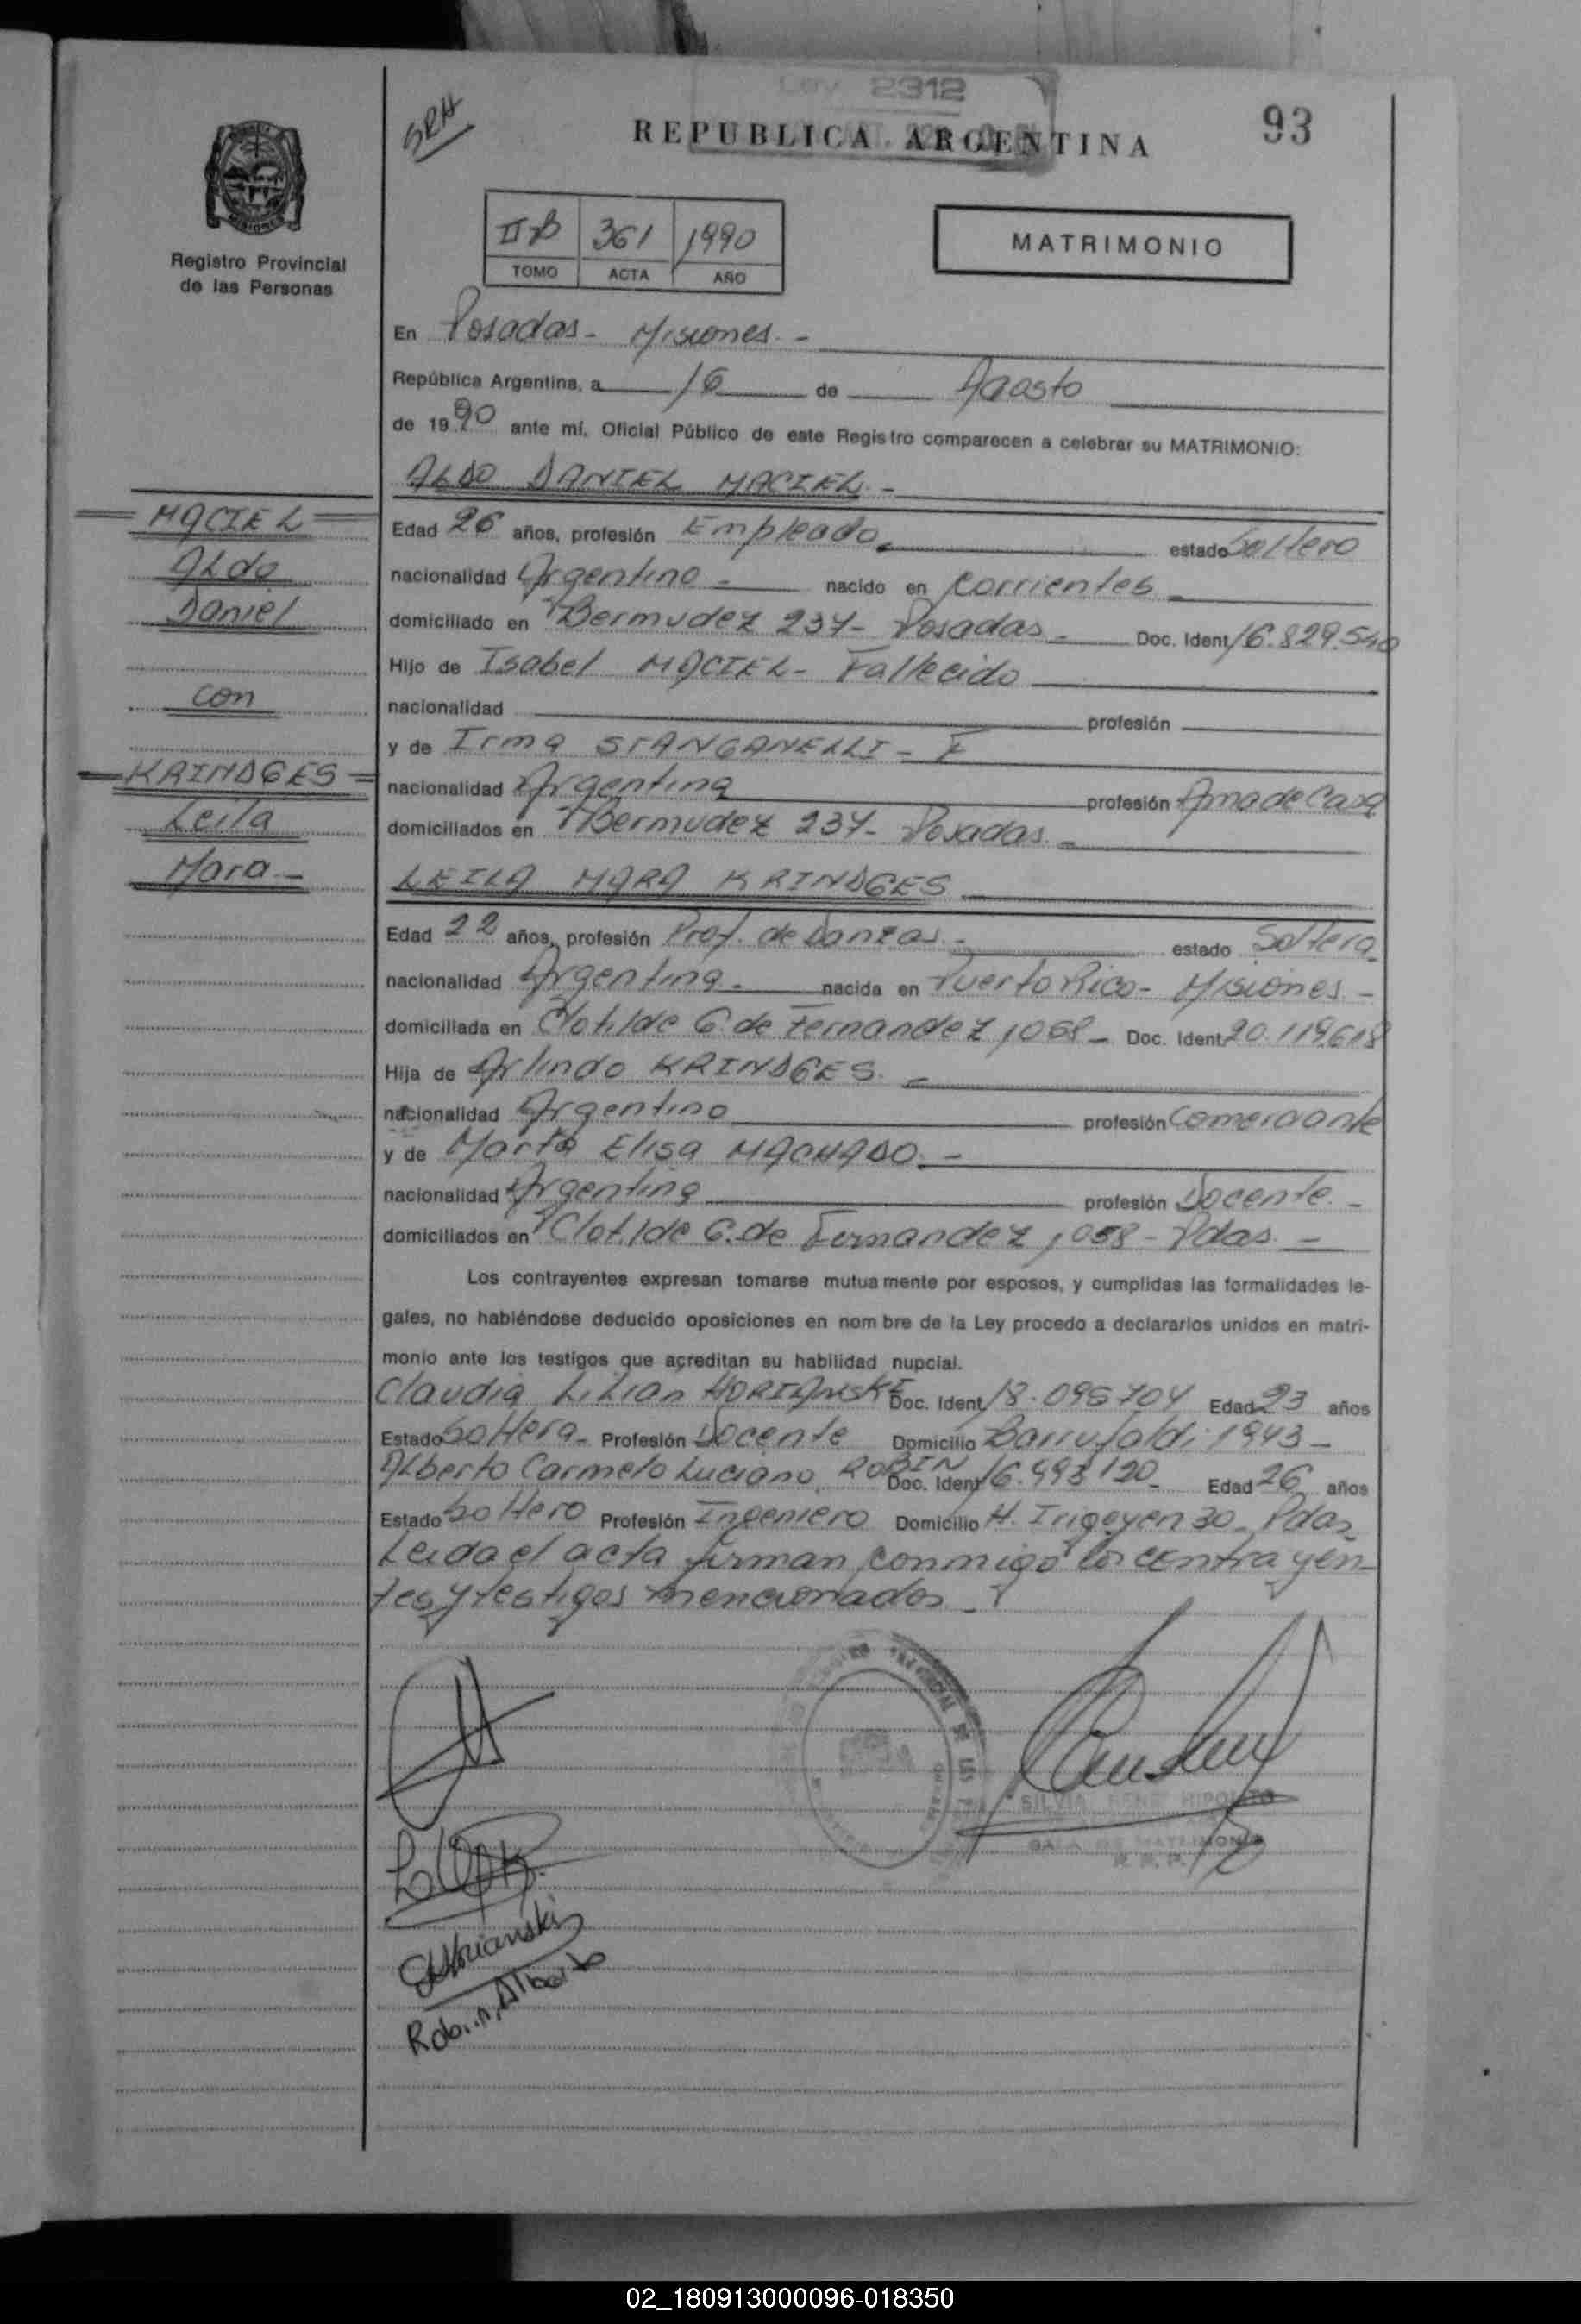 Ley 2312
93
SRH
REPUBLICA ARGENTINA
MISIONES
Registro Provincial
de las Personas
II B 361 1990
TOMO ACTA AÑO
MATRIMONIO
En Posadas - Misiones. -
República Argentina, a 16 de Agosto
de 1990 ante mí, Oficial Público de este Registro comparecen a celebrar su MATRIMONIO:
ALDO DANIEL MACIEL -
MACIEL
Aldo
Daniel
con
KRINDGES
Leila
Mara -
Edad 26 años, profesión Empleado. estado Soltero
nacionalidad Argentino - nacido en Corrientes -
domiciliado en Bermudez 237 - Posadas - Doc. Ident. 16.829.540
Hijo de Isabel MACIEL - Fallecido
nacionalidad profesión
y de Irma STANGANELLI - F
nacionalidad Argentina profesión Ama de Casa
domiciliados en Bermudez 237 - Posadas. -
LEILA MARA KRINDGES
Edad 22 años, profesión Prof. de Danzas. - estado Soltera -
nacionalidad Argentina. - nacida en Puerto Rico - Misiones. -
domiciliada en Clotilde G. de Fernandez 1058 - Doc. Ident. 20.119.618
Hija de Arlindo KRINDGES. -
nacionalidad Argentino profesión Comerciante
y de Marta Elisa MACHADO. -
nacionalidad Argentina profesión Docente. -
domiciliados en Clotilde G. de Fernandez 1058 - Pdas. -
Los contrayentes expresan tomarse mutuamente por esposos, y cumplidas las formalidades le-
gales, no habiéndose deducido oposiciones en nombre de la Ley procedo a declararlos unidos en matri-
monio ante los testigos que acreditan su habilidad nupcial.
Claudia Lilian HORIANSKI Doc. Ident. 18.096704 Edad 23 años
Estado Soltera - Profesión Docente Domicilio Barrufaldi 1943 -
Alberto Carmelo Luciano ROBIN Doc. Ident. 16.993120 - Edad 26 años
Estado Soltero Profesión Ingeniero Domicilio H. Irigoyen 30 - Pdas -
Leida el acta firman conmigo los contrayen-
tes y testigos mencionados. -
SILVIA RENE HIPOLITO
SALA DE MATRIMONIO
R. P. P.
Horianski
Robin, Alberto
02_180913000096-018350